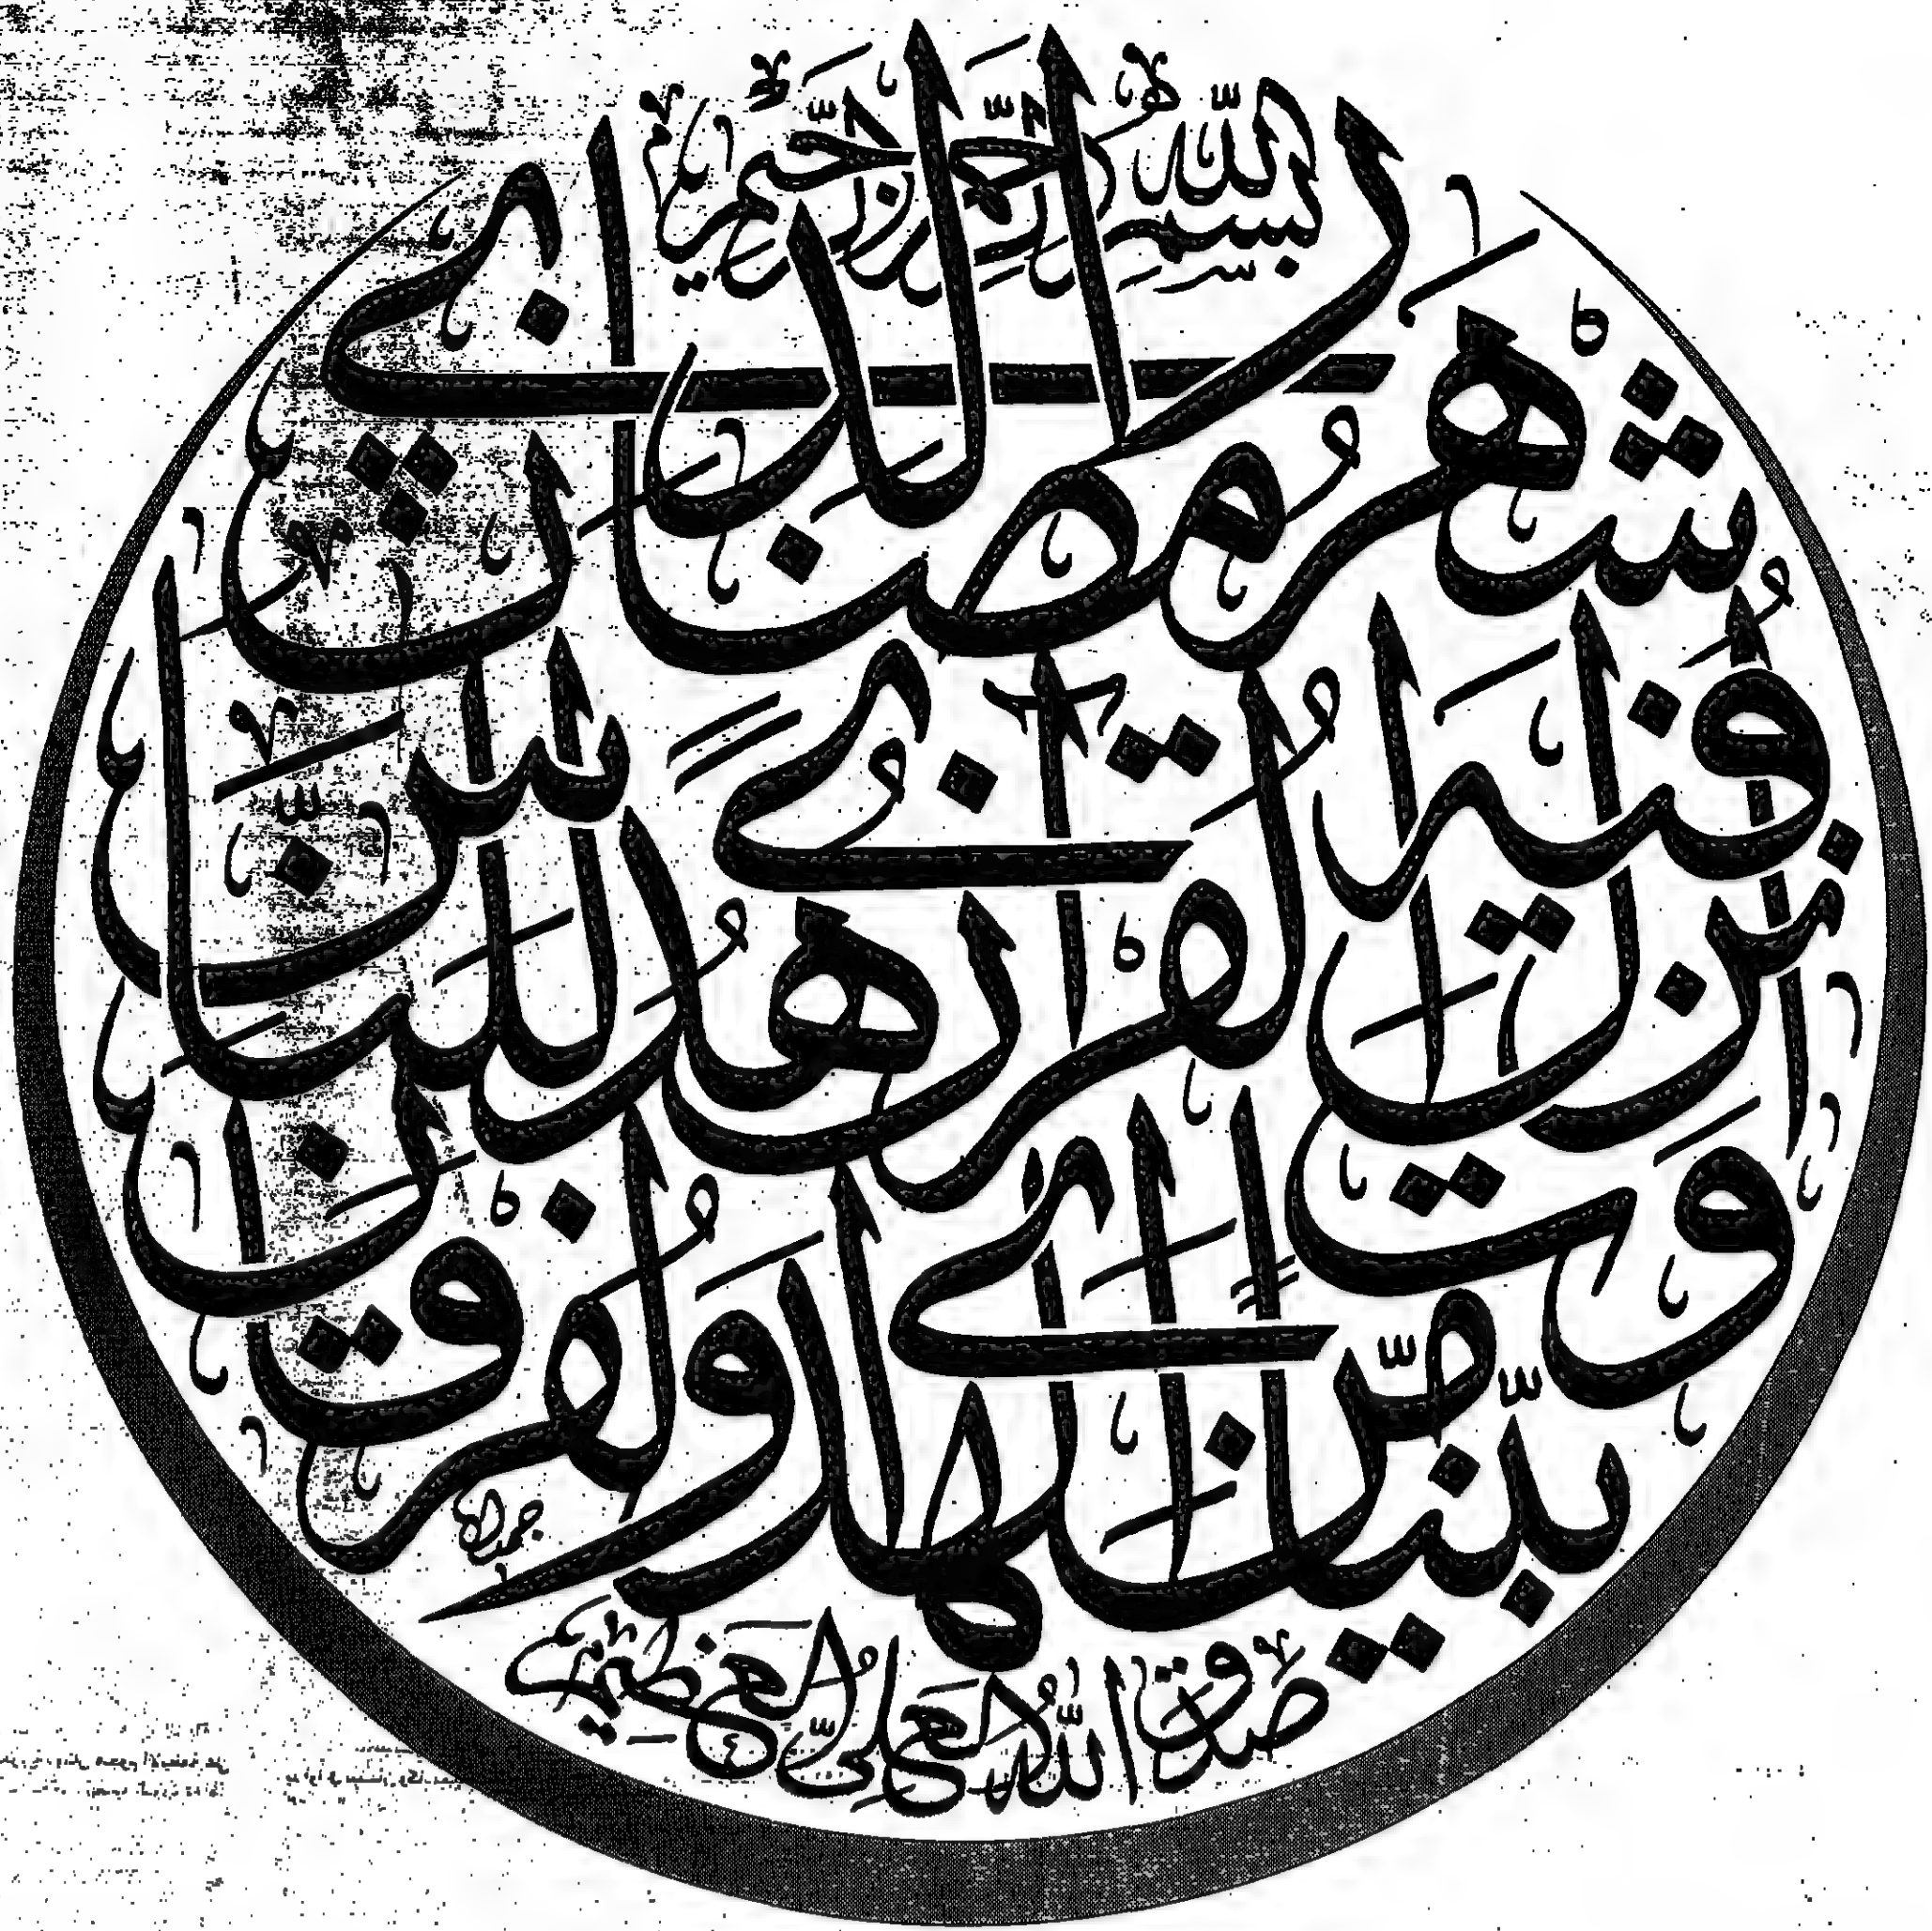 بِسْمِ اللهِ الرَّحْمٰنِ الرَّحِيمِ
شَهْرُ رَمَضَانَ الَّذِي
أُنْزِلَ فِيهِ الْقُرْآنُ هُدًى لِلنَّاسِ
وَبَيِّنَاتٍ مِنَ الْهُدَىٰ وَالْفُرْقَانِ
صَدَقَ اللهُ الْعَلِيُّ الْعَظِيمُ